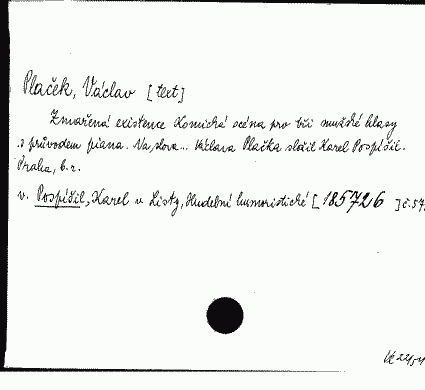 Plaček, Václav [text]
Zmařená existence Komická scéna pro tři mužské hlasy
s průvodem piana. Na slova... Václava Plačka složil Karel Pospíšil.
Praha, b. r.
v. Pospíšil, Karel v Listy, Hudební humoristické [185726 ] č. 57.